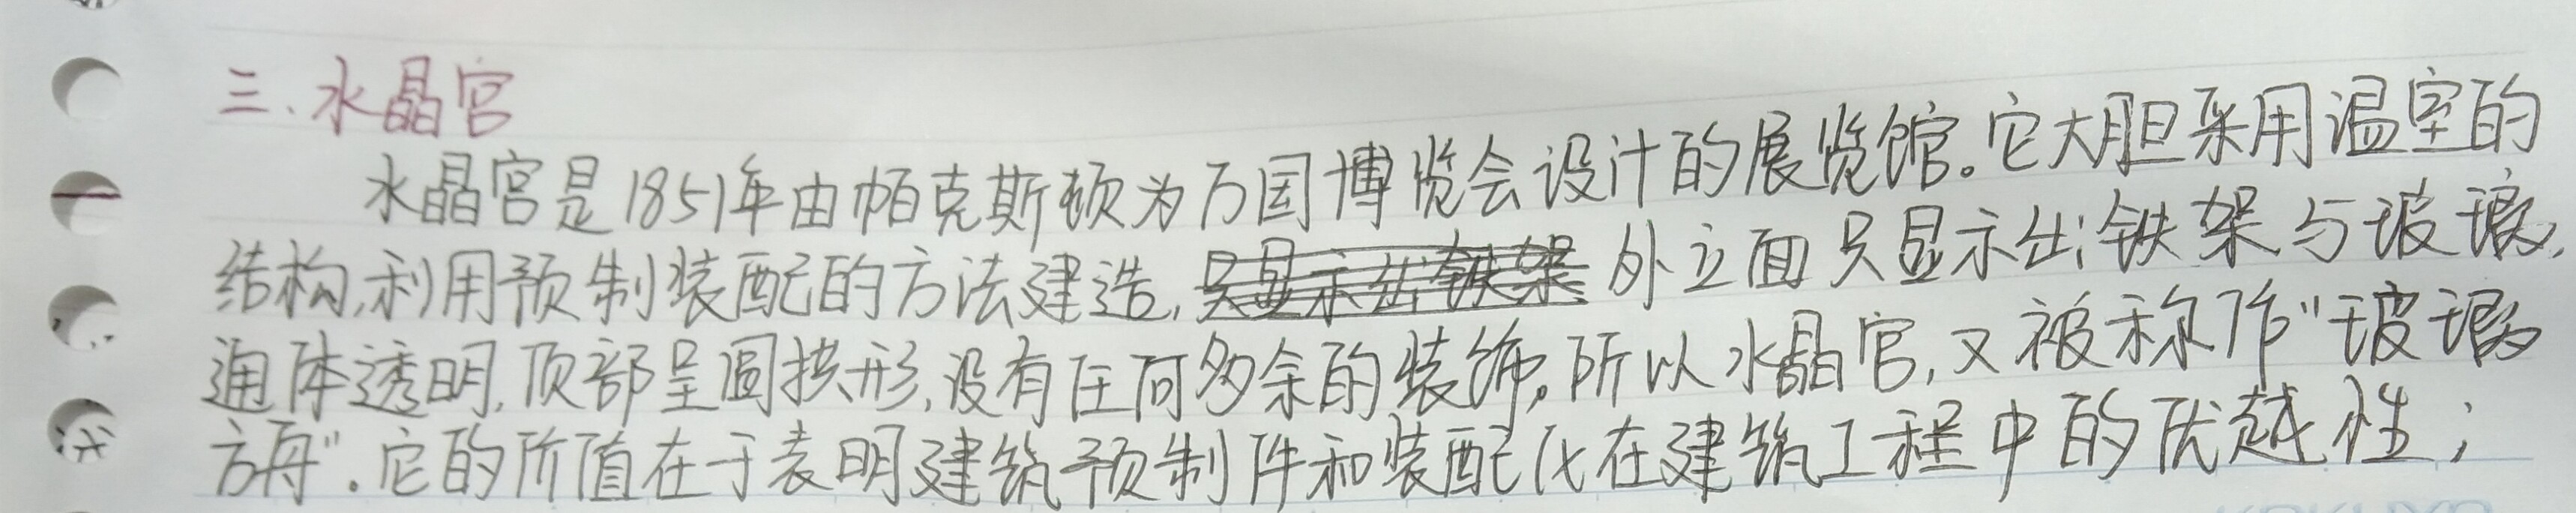 三.水晶宫
水晶宫是1851年由帕克斯顿为万国博览会设计的展览馆。它大胆采用温室的
结构,利用预制装配的方法建造,只显示出铁架 外立面只显示出铁架与玻璃,
通体透明,顶部呈圆拱形,没有任何多余的装饰。所以水晶宫,又被称作“玻璃
方舟”.它的价值在于表明建筑预制件和装配化在建筑工程中的优越性;